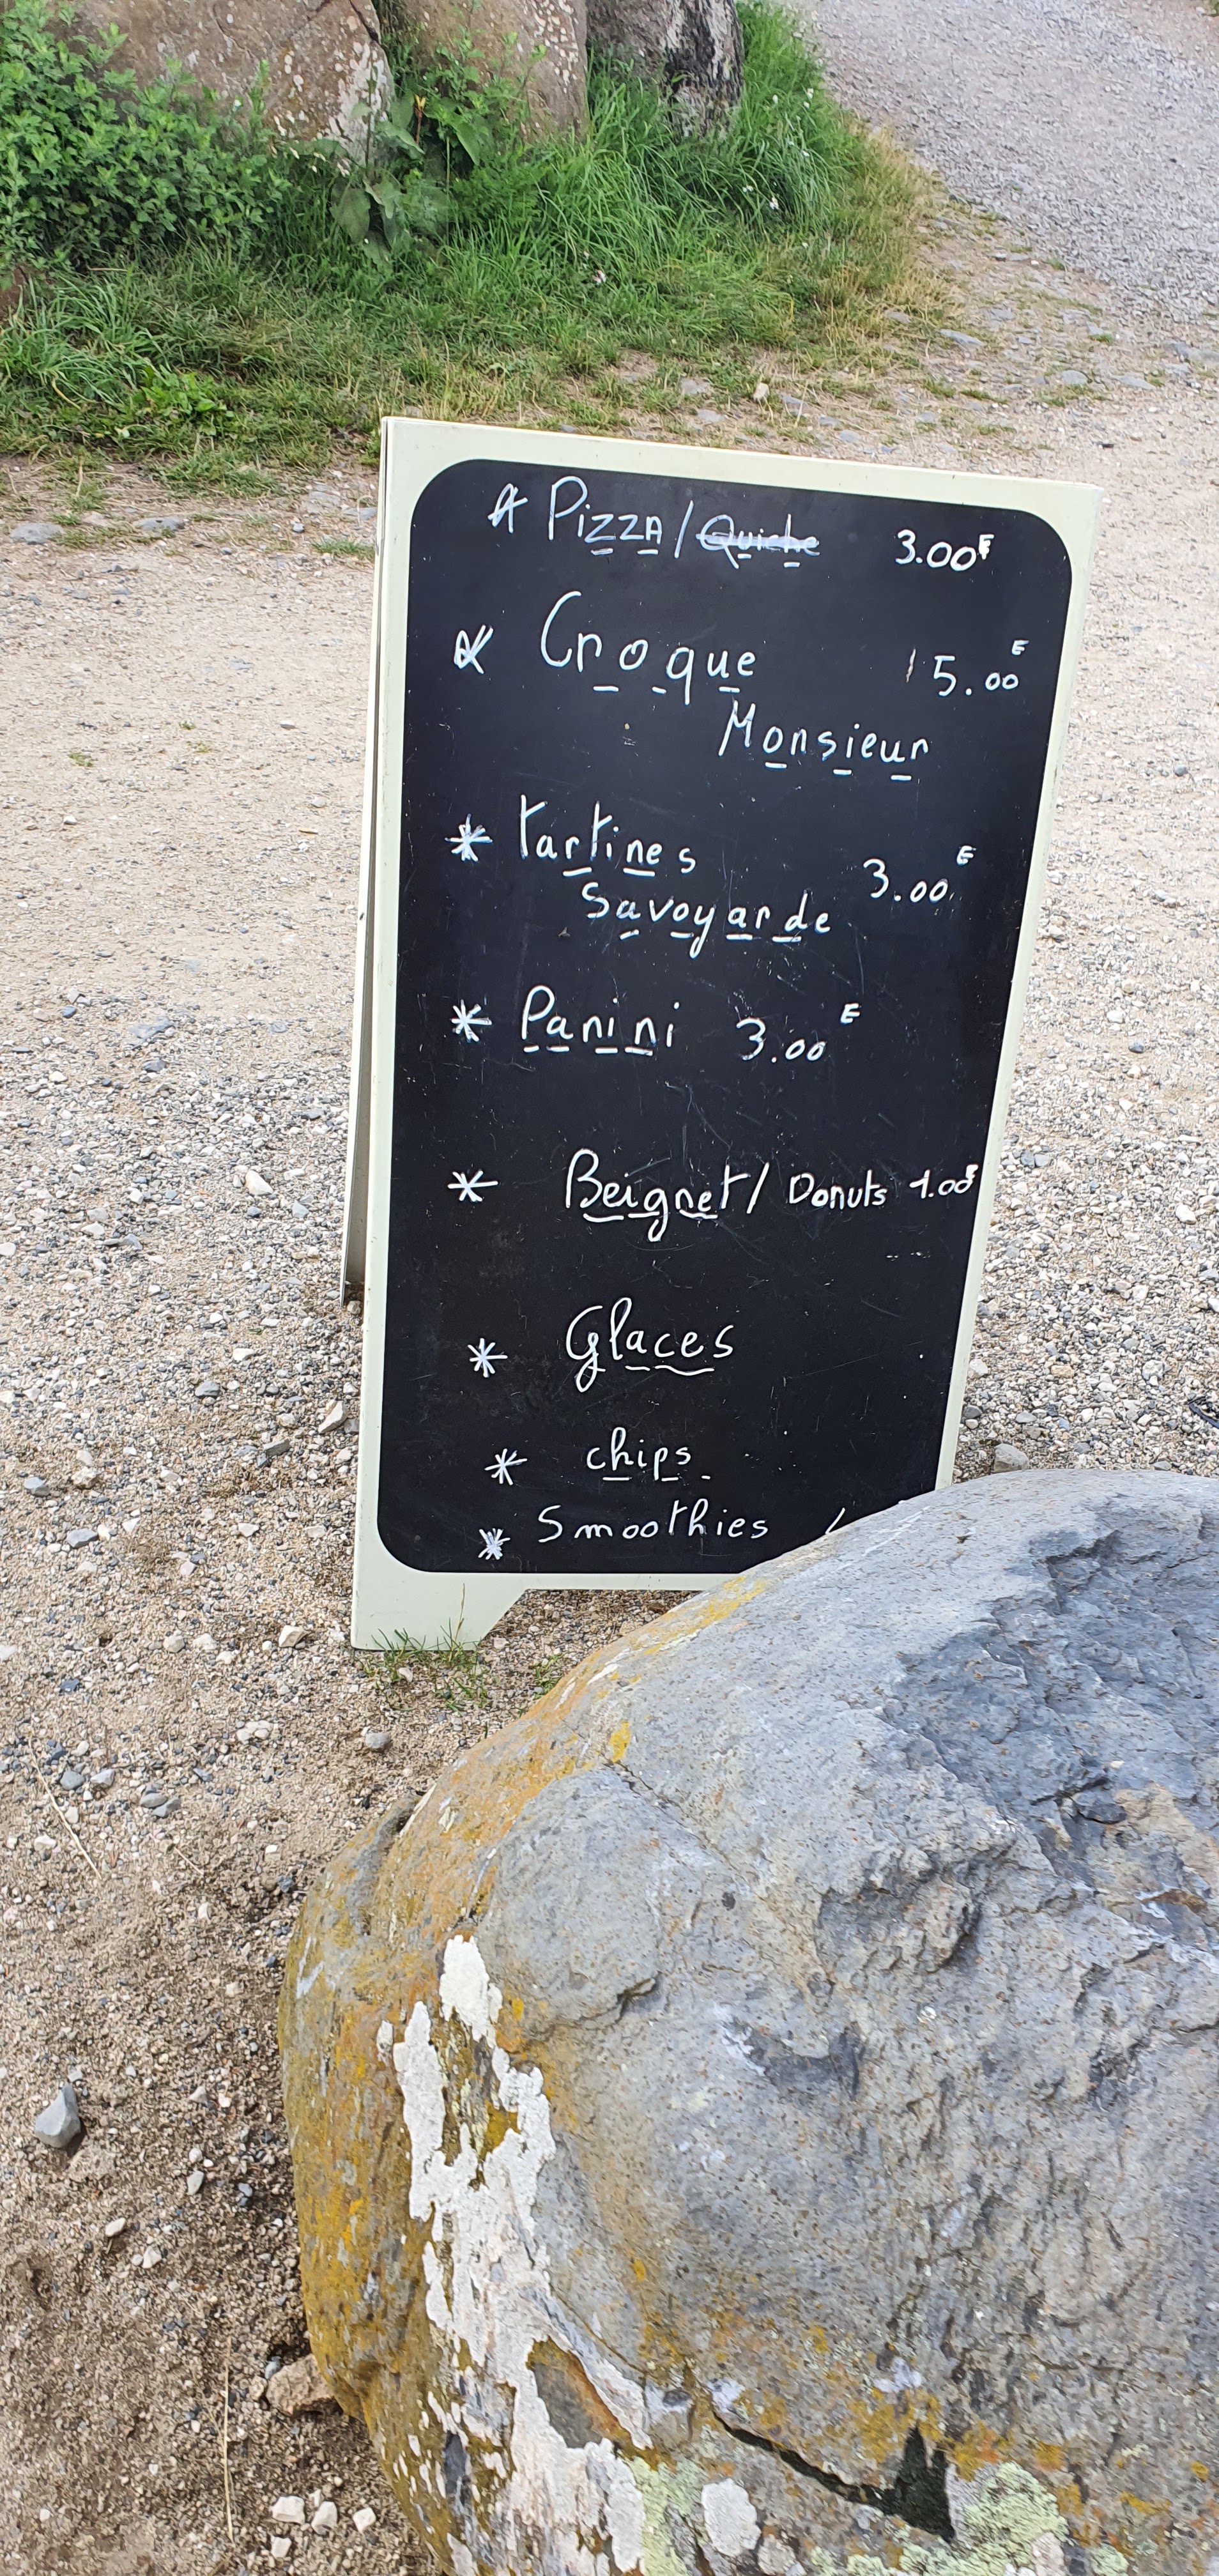 * Pizza / Quiche 3.00€
* Croque 5.00€
Monsieur
* Tartines
Savoyarde 3.00€
* Panini 3.00€
* Beignet / Donuts 1.00€
* Glaces
* chips
* Smoothies